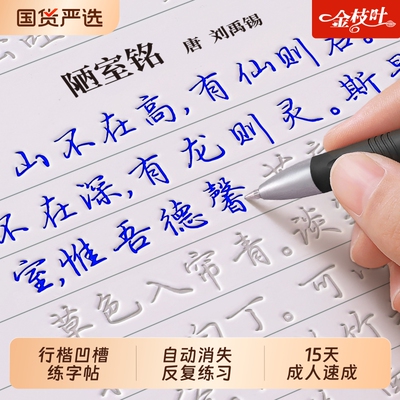 国货严选
金枝叶
陋室铭 唐 刘禹锡
山不在高，有仙则名。
不在深，有龙则灵。斯是
室，惟吾德馨
草色入帘青。谈
丁。可
竹
行楷凹槽
练字帖
自动消失
反复练习
15天
成人速成